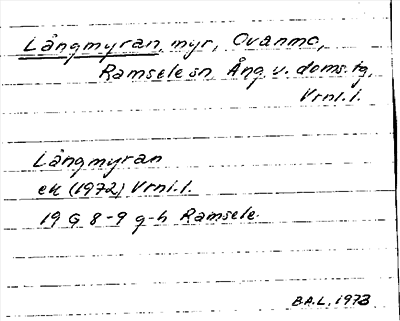 Långmyran, myr, Ovanmo,
Ramsele sn, Ång. v. doms. tg,
Vrnl.l.
Långmyran
ek (1972) Vrnl.l.
19 G 8-9 g-h Ramsele.
B.A.L. 1973